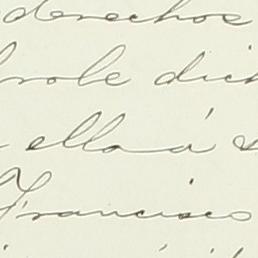 derechos
role dich
ella á s
Francisco